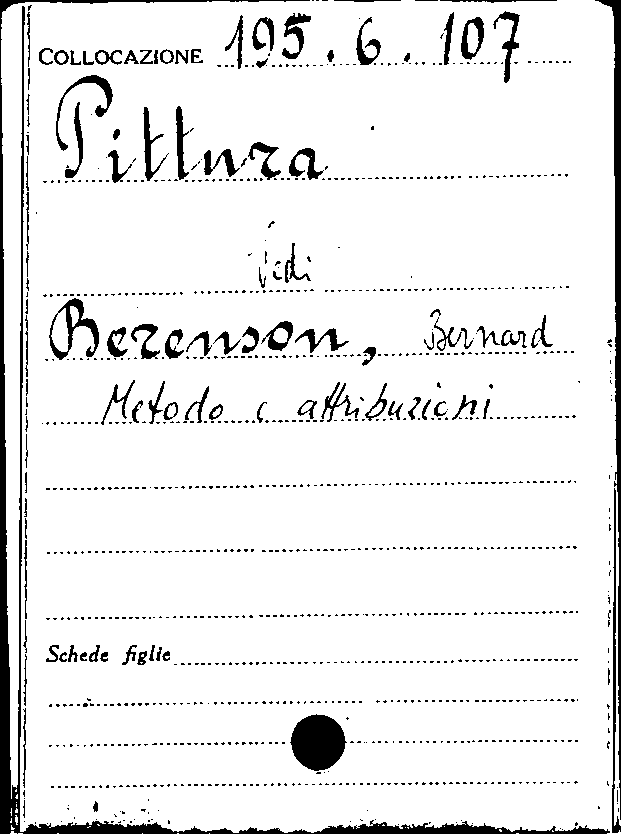 COLLOCAZIONE 195.6.107
Pittura
Vedi
Berenson, Bernard
Metodo e attribuzioni
Schede figlie